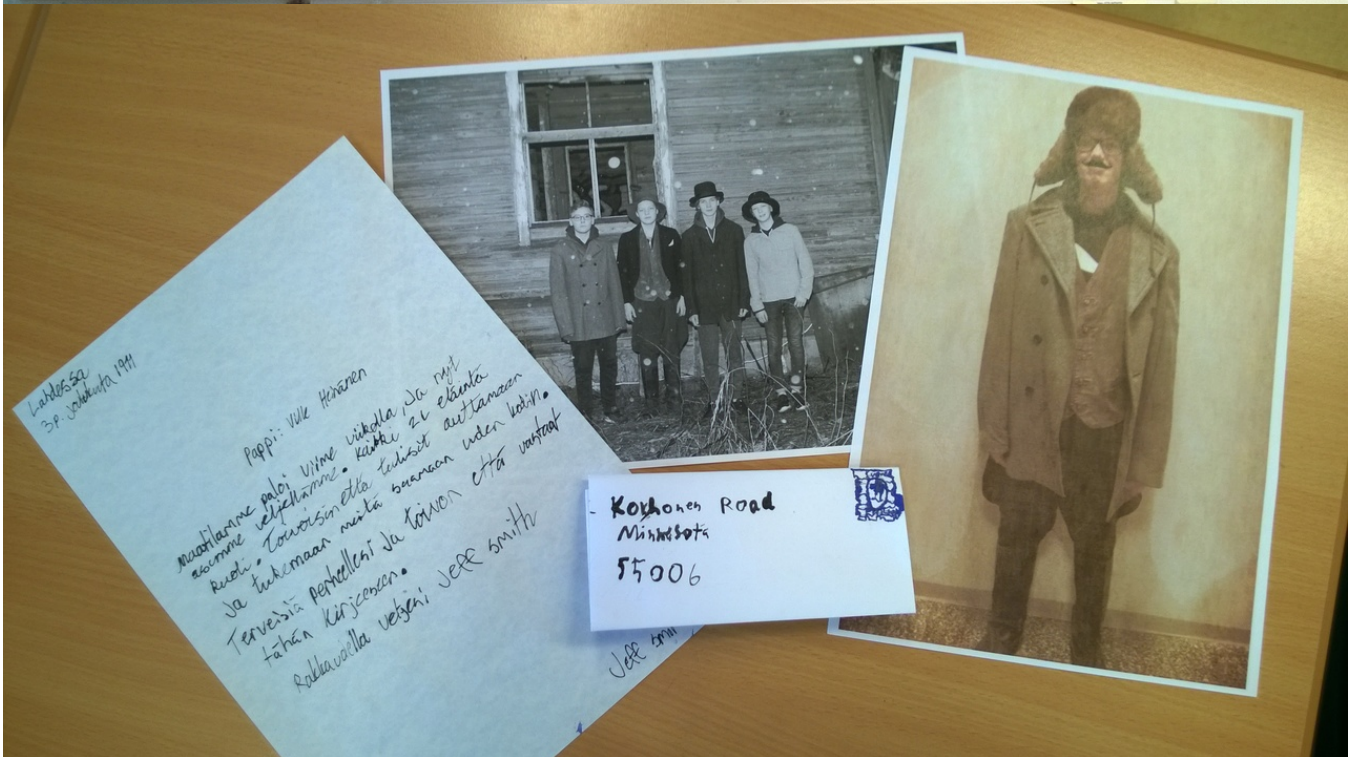 Lahdessa
3p. joulukuuta 1911
Pappi: Ville Heinänen
Maatilamme paloi viime viikolla, Ja nyt
asumme veljellämme. Kaikki 26 eläintä
kuoli. Toivoisin että tulisit auttamaan
Ja tukemaan meitä saamaan uden kotin.
Terveisiä perheellesi Ja toivon että vastaat
tähän kirjeeseen.
Rakkaudella veljeni Jeff Smith
Jeff
Korhonen Road
Minnesota
55006